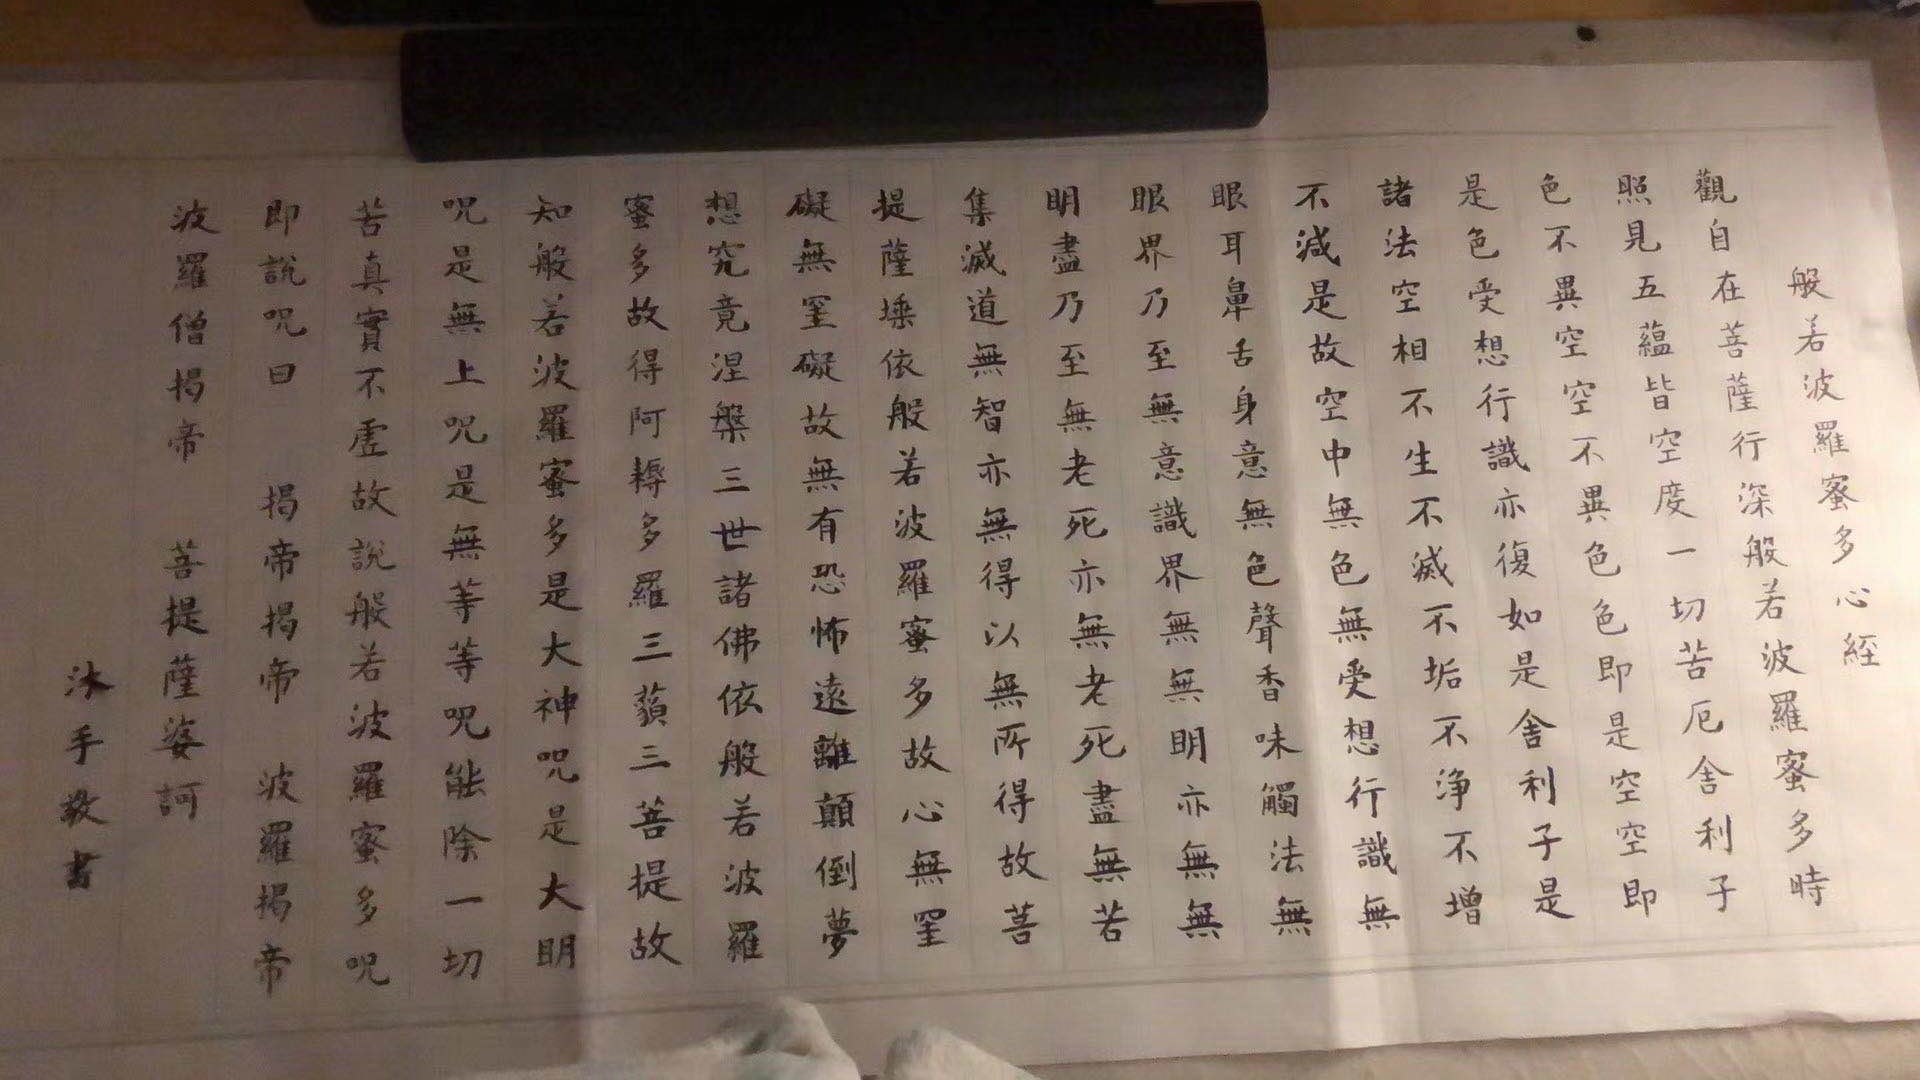 般若波羅蜜多心經
觀自在菩薩行深般若波羅蜜多時
照見五蘊皆空度一切苦厄舍利子
色不異空空不異色色即是空空即
是色受想行識亦復如是舍利子是
諸法空相不生不滅不垢不淨不增
不減是故空中無色無受想行識無
眼耳鼻舌身意無色聲香味觸法無
眼界乃至無意識界無無明亦無無
明盡乃至無老死亦無老死盡無苦
集滅道無智亦無得以無所得故菩
提薩埵依般若波羅蜜多故心無罣
礙無罣礙故無有恐怖遠離顛倒夢
想究竟涅槃三世諸佛依般若波羅
蜜多故得阿耨多羅三藐三菩提故
知般若波羅蜜多是大神咒是大明
咒是無上咒是無等等咒能除一切
苦真實不虛故說般若波羅蜜多咒
即說咒曰 揭帝揭帝 波羅揭帝
波羅僧揭帝 菩提薩婆訶
沐手敬書